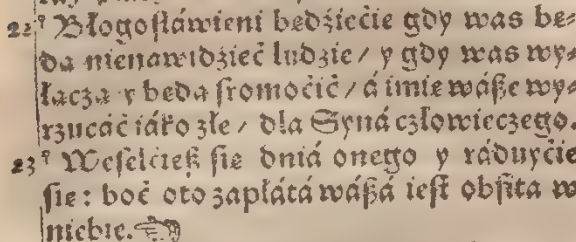 22 Błogosłáwieni będźiećie gdy was bę⸗
dą nienawidźieć ludzie / y gdy was wy⸗
łączą y będą sromoćić / á imię wáße wy⸗
rzucáć iáko złe / dla Syná człowieczego.
23 Weselćież się dniá onego y ráduyćie
się: boć oto zapłátá wáßá iest obfita w
niebie.